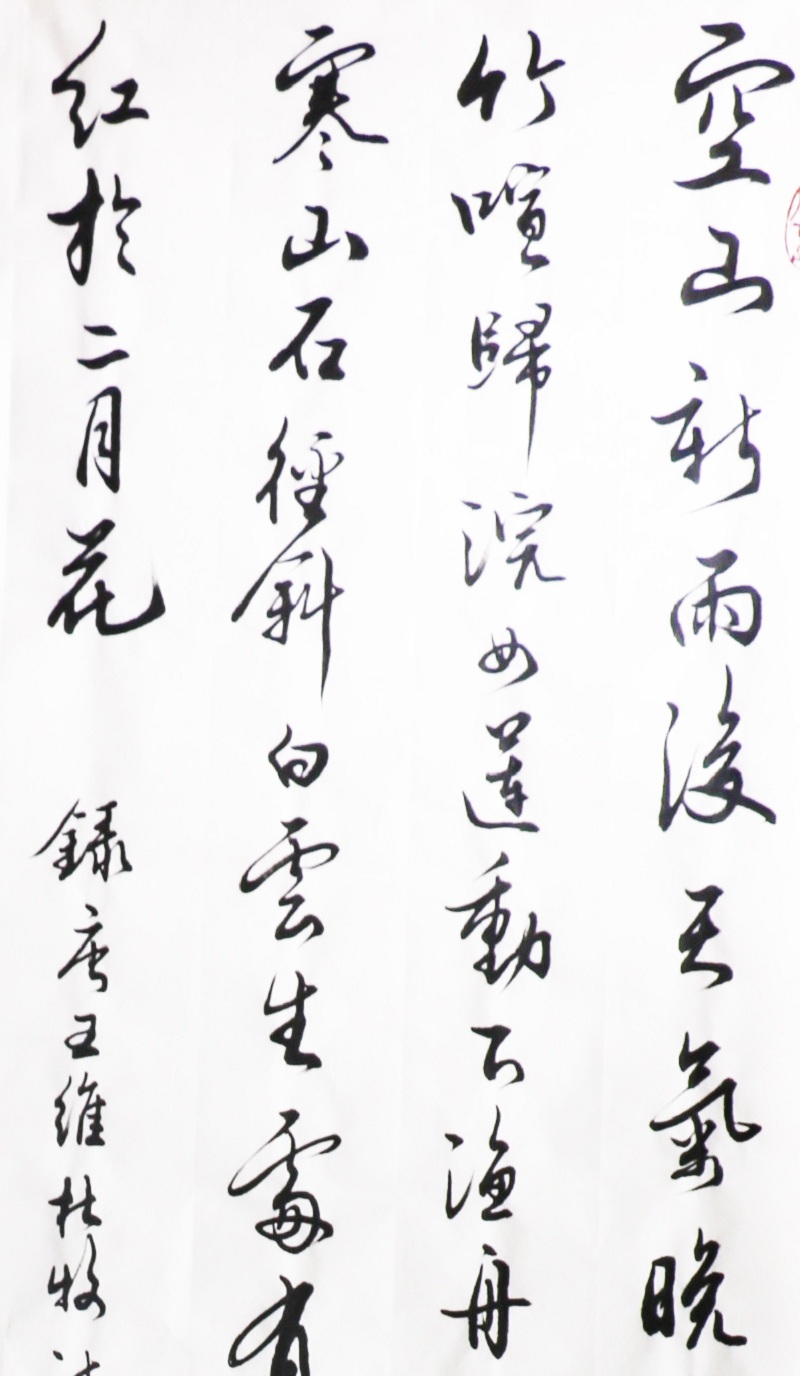 空山新雨後天氣晚
竹喧歸浣女蓮動下漁舟
寒山石徑斜白雲生處有
紅於二月花
錄唐王維杜牧詩